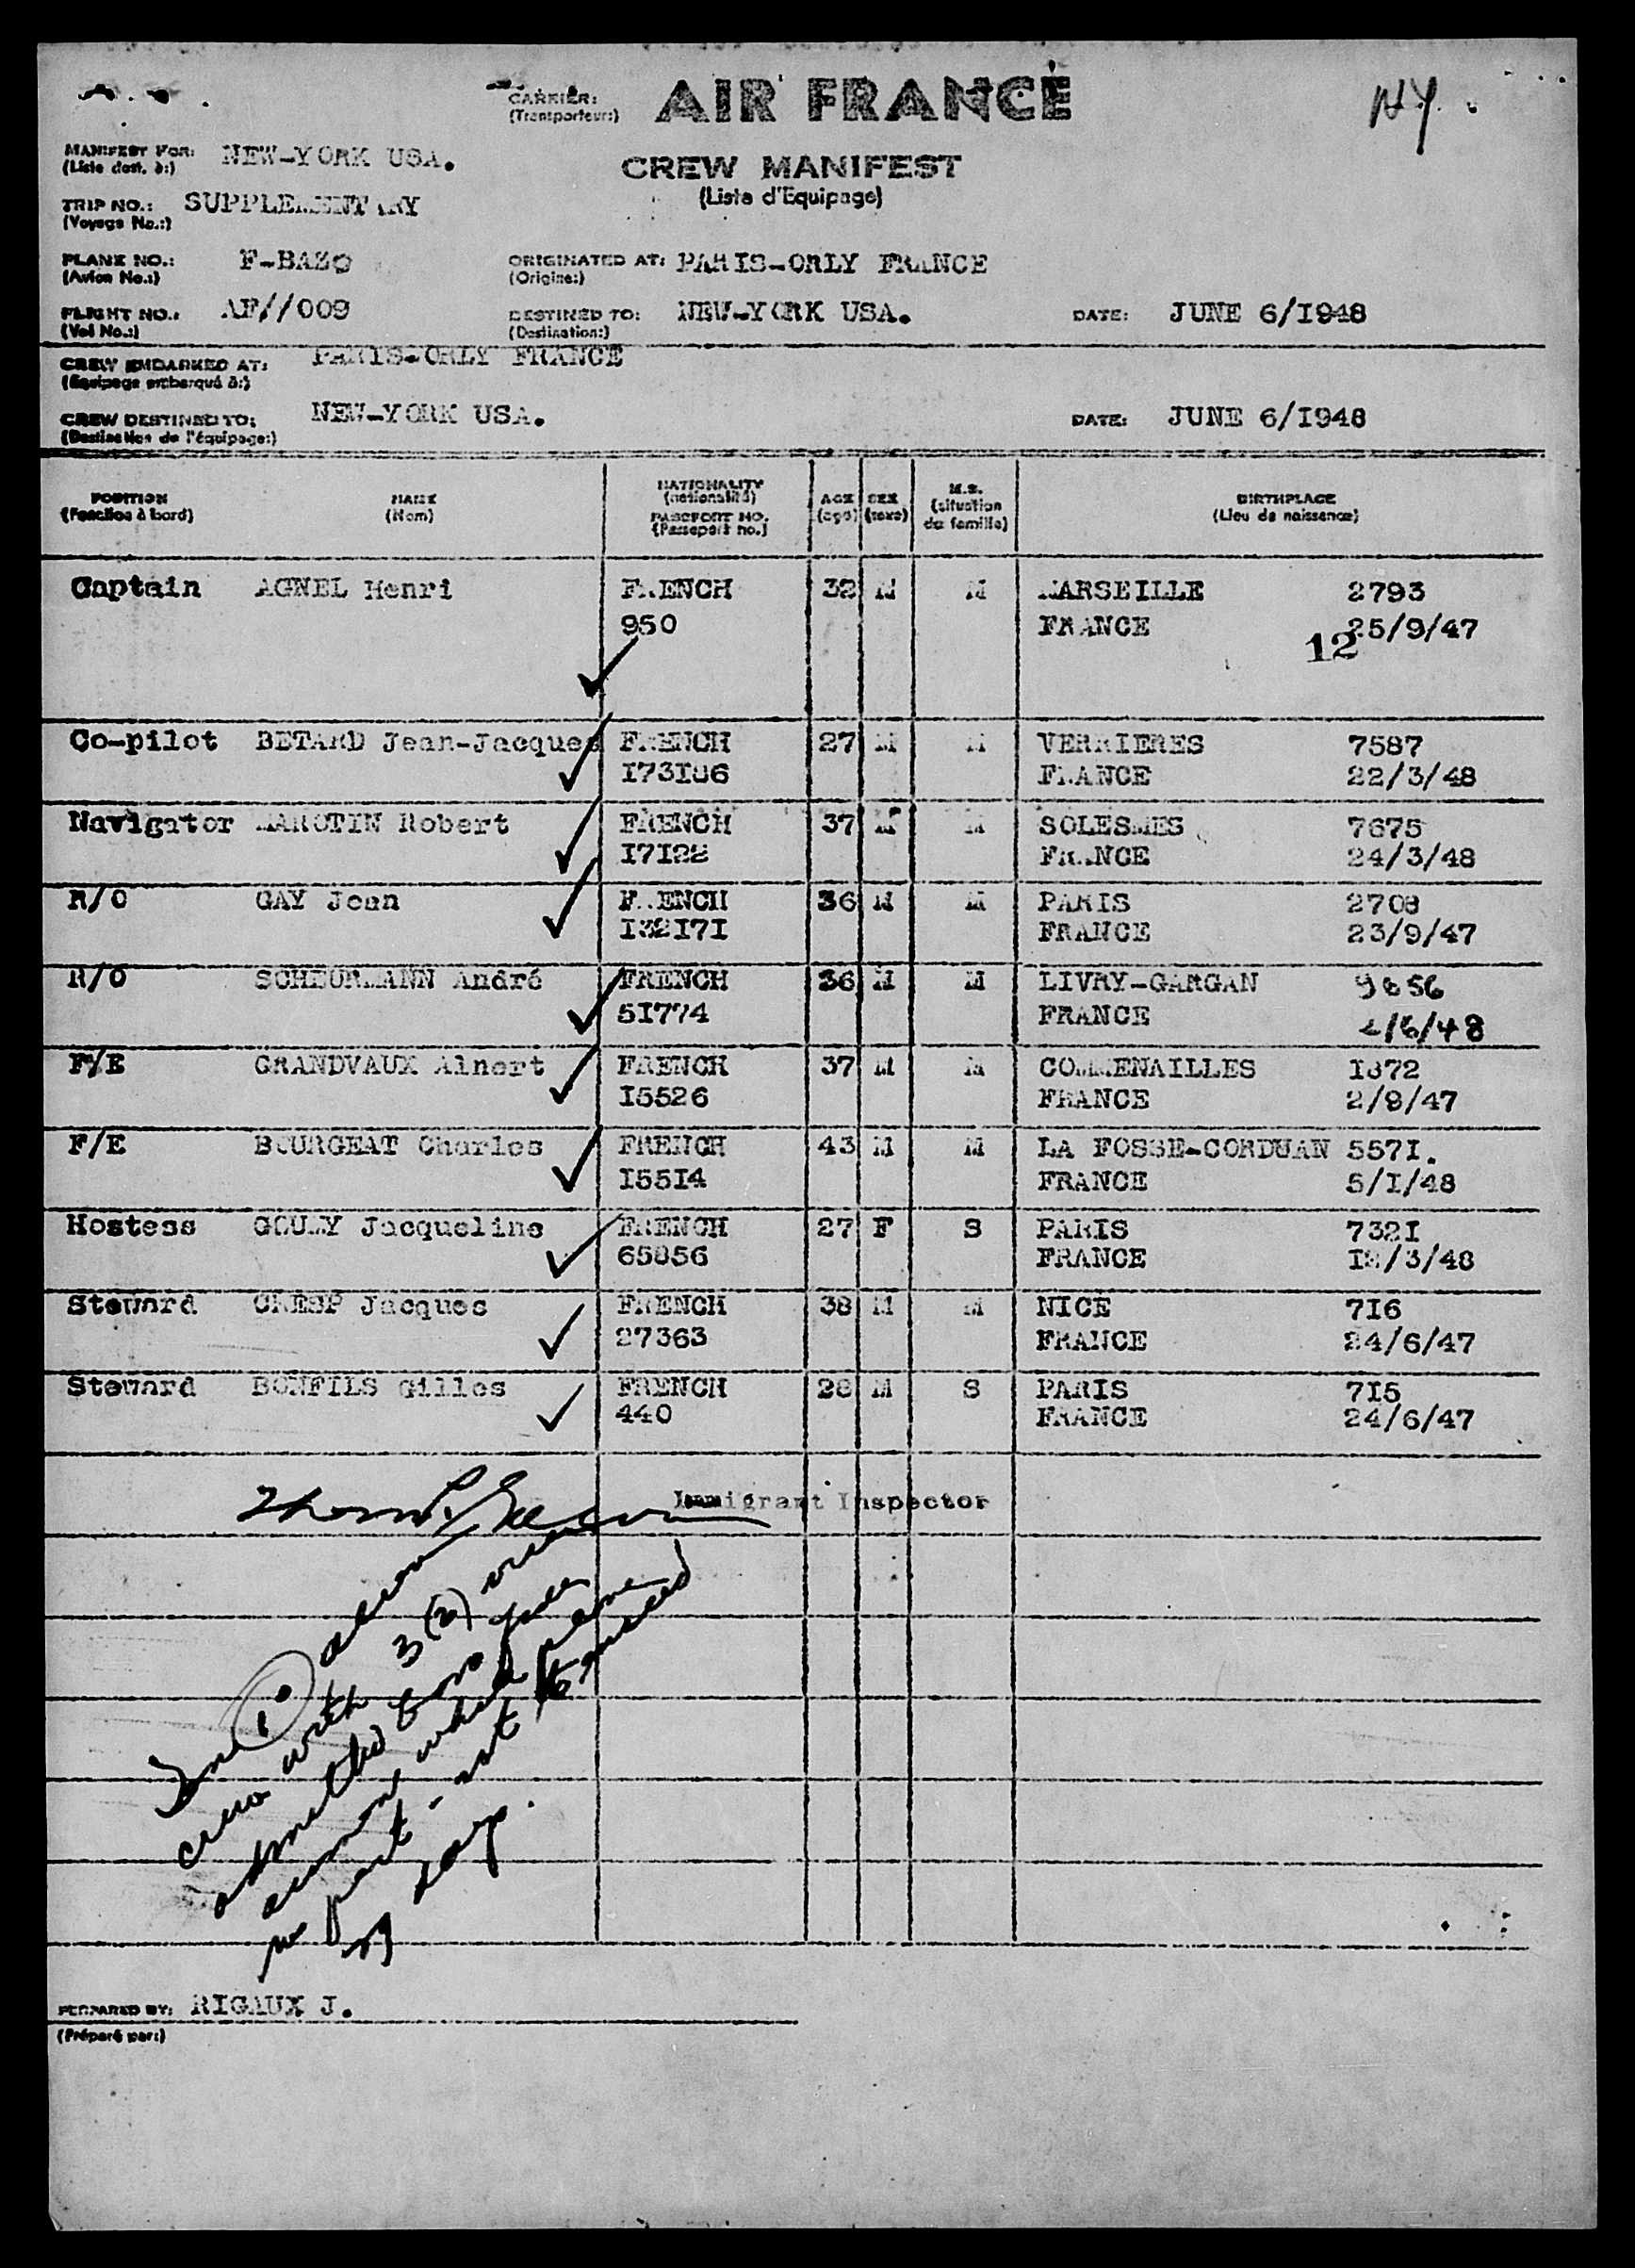 CARRIER: AIR FRANCE NY.
(Transporteur:)
MANIFEST FOR: NEW-YORK USA.
(Liste dest. à:)
CREW MANIFEST
(Liste d'Equipage)
TRIP NO.: SUPPLEMENTARY
(Voyage No.:)
PLANE NO.: F-BAZO ORIGINATED AT: PARIS-ORLY FRANCE
(Avion No.:) (Origine:)
FLIGHT NO.: AF//009 DESTINED TO: NEW-YORK USA. DATE: JUNE 6/I948
(Vol No.:) (Destination:)
CREW EMBARKED AT: PARIS-ORLY FRANCE
(Equipage embarqué à:)
CREW DESTINED TO: NEW-YORK USA. DATE: JUNE 6/I948
(Destination de l'équipage:)
POSITION NAME NATIONALITY AGE SEX M.S. BIRTHPLACE
(Fonction à bord) (Nom) (nationalité) (age) (sexe) (situation de famille) (Lieu de naissance)
PASSPORT NO.
(Passeport no.)
Captain AGNEL Henri FRENCH 32 M M MARSEILLE 2793
950 FRANCE 25/9/47
12
Co-pilot BETARD Jean-Jacques FRENCH 27 M M VERRIERES 7587
I73I86 FRANCE 22/3/48
Navigator MAROTIN Robert FRENCH 37 M M SOLESMES 7675
I7I22 FRANCE 24/3/48
R/O GAY Jean FRENCH 36 M M PARIS 2708
I32I7I FRANCE 23/9/47
R/O SCHEURMANN André FRENCH 36 M M LIVRY-GARGAN 9856
5I774 FRANCE 2/6/48
F/E GRANDVAUX Alnert FRENCH 37 M M COMMENAILLES I872
I5526 FRANCE 2/9/47
F/E BOURGEAT Charles FRENCH 43 M M LA FOSSE-CORDUAN 557I.
I55I4 FRANCE 5/I/48
Hostess GOUMY Jacqueline FRENCH 27 F S PARIS 732I
65856 FRANCE I2/3/48
Steward CRESP Jacques FRENCH 38 M M NICE 7I6
27363 FRANCE 24/6/47
Steward BONFILS Gilles FRENCH 28 M S PARIS 7I5
440 FRANCE 24/6/47
Immigrant Inspector
crew with 3(2)
admitted
while plane
in port - not to exceed
29 days.
PREPARED BY: RIGAUX J.
(Préparé par:)